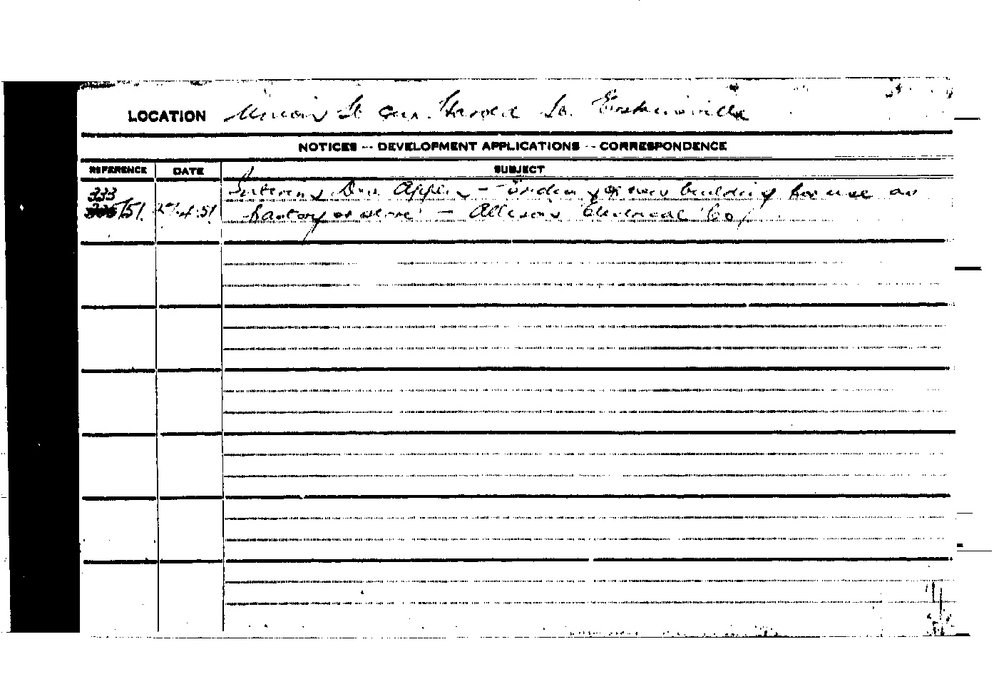 LOCATION Union St cnr. Harold St. Erskineville
NOTICES -- DEVELOPMENT APPLICATIONS -- CORRESPONDENCE
REFERENCE DATE SUBJECT
333
/51. .4.51 Interim Dev. Appln - of new building for use as
factory or store - Allison's Electrical Co.